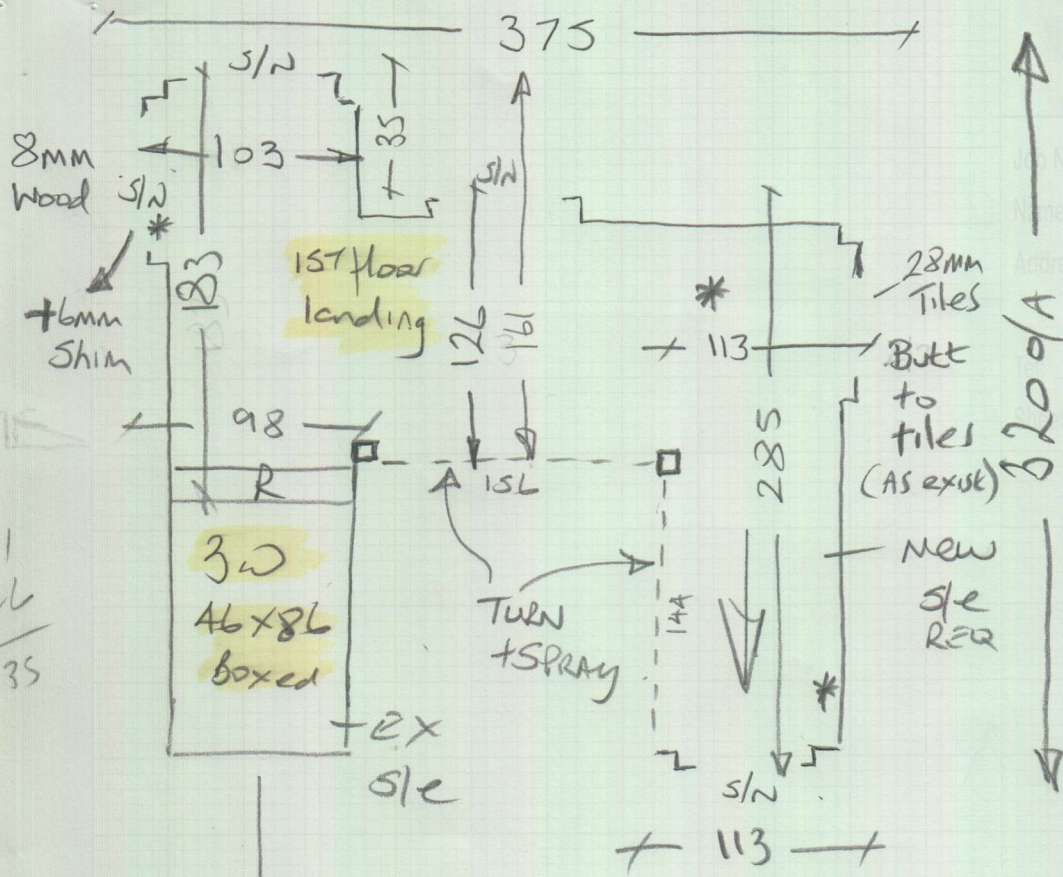 375
S/N
35
8mm
Wood
103
S/N
S/N
*
+6mm
Shim
183
1ST floor
landing
126
161
*
28mm
Tiles
113
Butt
to
tiles
(As exist)
320 o/A
98
R
156
285
3W
46 x 86
Boxed
TURN
+SPRAY
144
New
S/e
REQ
*
EX
S/e
S/N
113
35